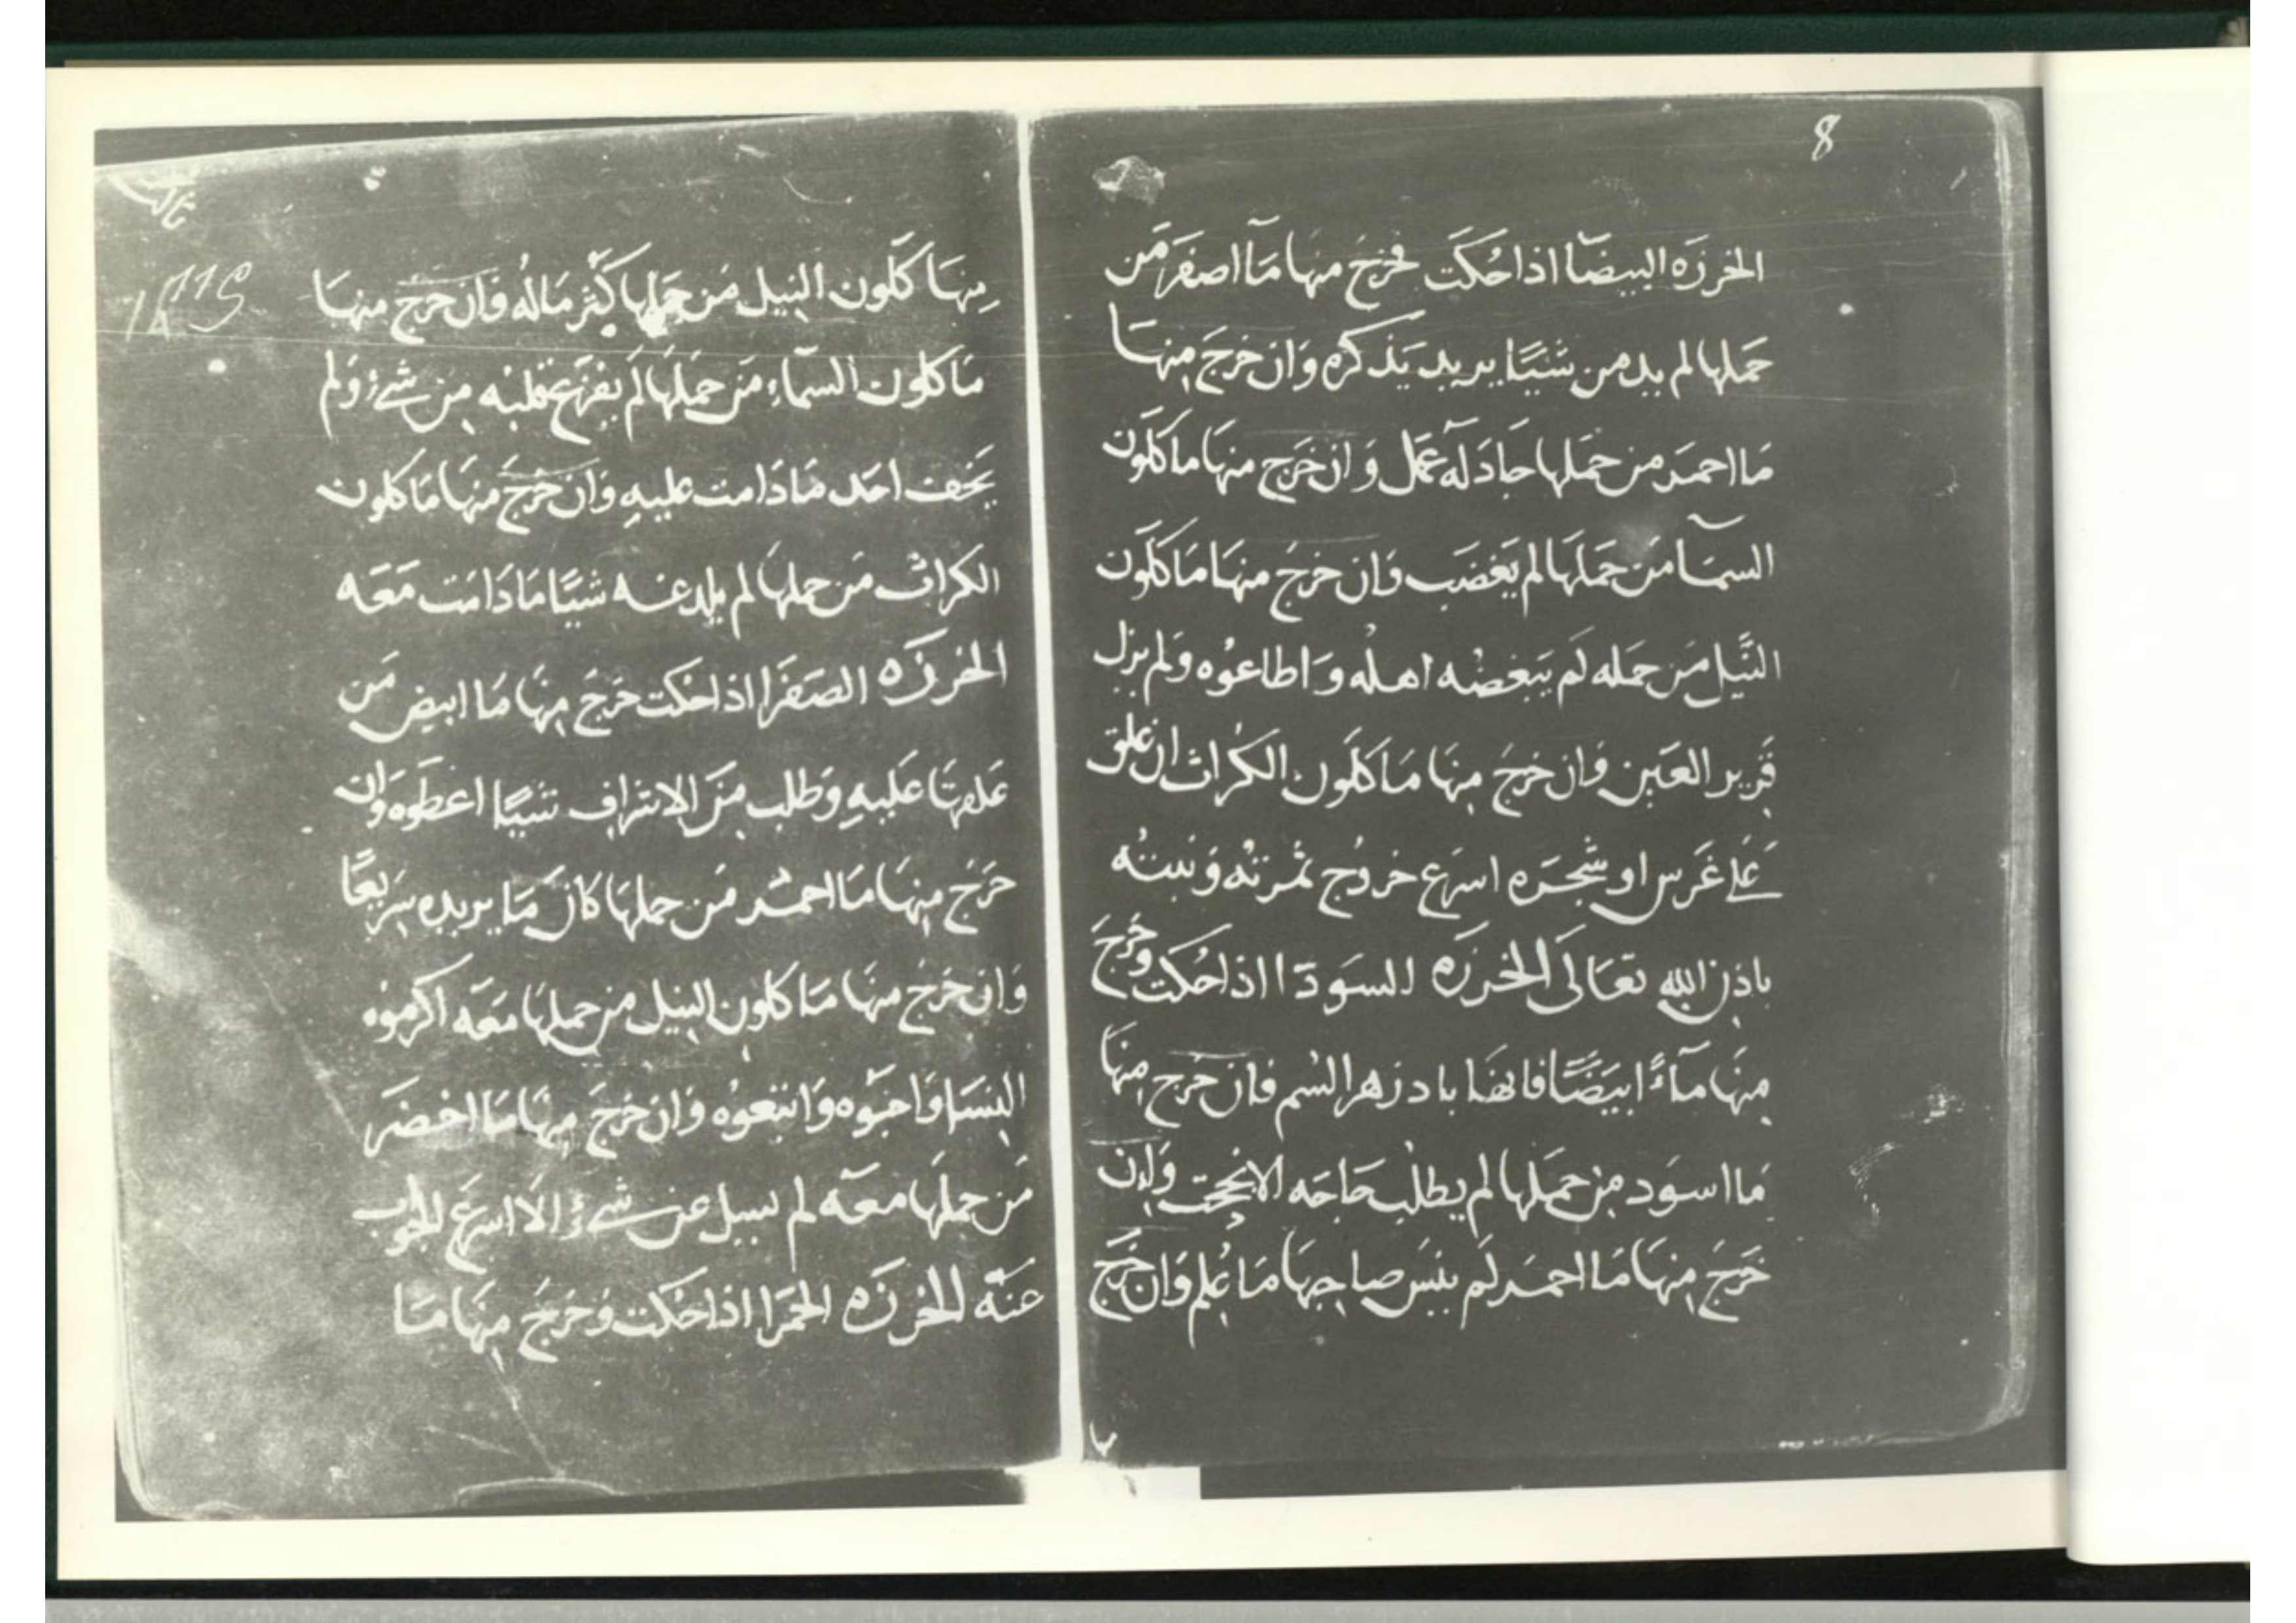 8
الخرزه البيضآ اذا حُكَت فخرج منها مآ اصفَر مَن
حَملها لم يدمن شَيئًا يريد يَذكره وَان خرَجَ مِنهَا
مَا احمَر من حَملها جَادَله عَمل وَ ان خَرَج منهَا ما كلَون
السمَآ مَن حَملهَا لم يَغضَب وَان خرَجَ منهَا مَا كلَون
النَّيل مَن حَمله لَم يَبغضْه اهله وَ اطاعوُه وَلم يزل
قَرير العَين وَان خرجَ مِنهَا مَا كلَون الكُراث ان علق
عَلَى غَرس او شجَره اسرَع خروُج ثمرتهُ وَ نبتهُ
باذِن اللهِ تعَالَى الخرزَه السَودَا اذا حُكت وخَرجَ
مِنهَا مآءً ابيَضًا فانهَا بادزهر السُم فان خَرج مِنهَا
مَا اسوَد مِن حمَلها لم يطلبْ حَاجَه الا نجحَت وَان
خَرجَ مِنهَا مَا احمَر لَم ينسَ صَاحِبهَا مَا عُلِم وَان خَرجَ
مِنهَا كلَون النيل مَن حَملها كثر مَالُه فَان خرَج منهَا
مَا كلون السمآءِ مَن حَملهَا لَم يفزَع قلبُه مِن شَيءٍ وَلم
يَخَف احَد مَا دَامت عليهِ وَان خَرَجَ منهَا مَا كلون
الكراث مَن حملهَا لم يلدغه شَيئًا مَا دَامَت مَعَه
الخرزَه الصَفرَا اذا حُكت خَرَجَ مِنهَا مَا ابيض مَن
عَلقهَا عَليهِ وَطلب مَن الاشرَاف شيئًا اعطَوه وَان
خَرَجَ مِنهَا مَا احمَر مَن حملهَا كانَ مَا يريده سَرِيعًا
وَان خَرجَ منهَا مَا كلون النيل من حملهَا مَعَه اكرموُه
النسَا وَاحبَوُه وَاتبَعوُه وَان خرَجَ مِنهَا مَا اخضَر
مَن حملَها معَه لم يسيل عن شيءٍ الَا اسرَع الجَواب
عَنَه الخرزَه الحمَرا اذا حُكت وَخرَجَ مِنهَا مَا